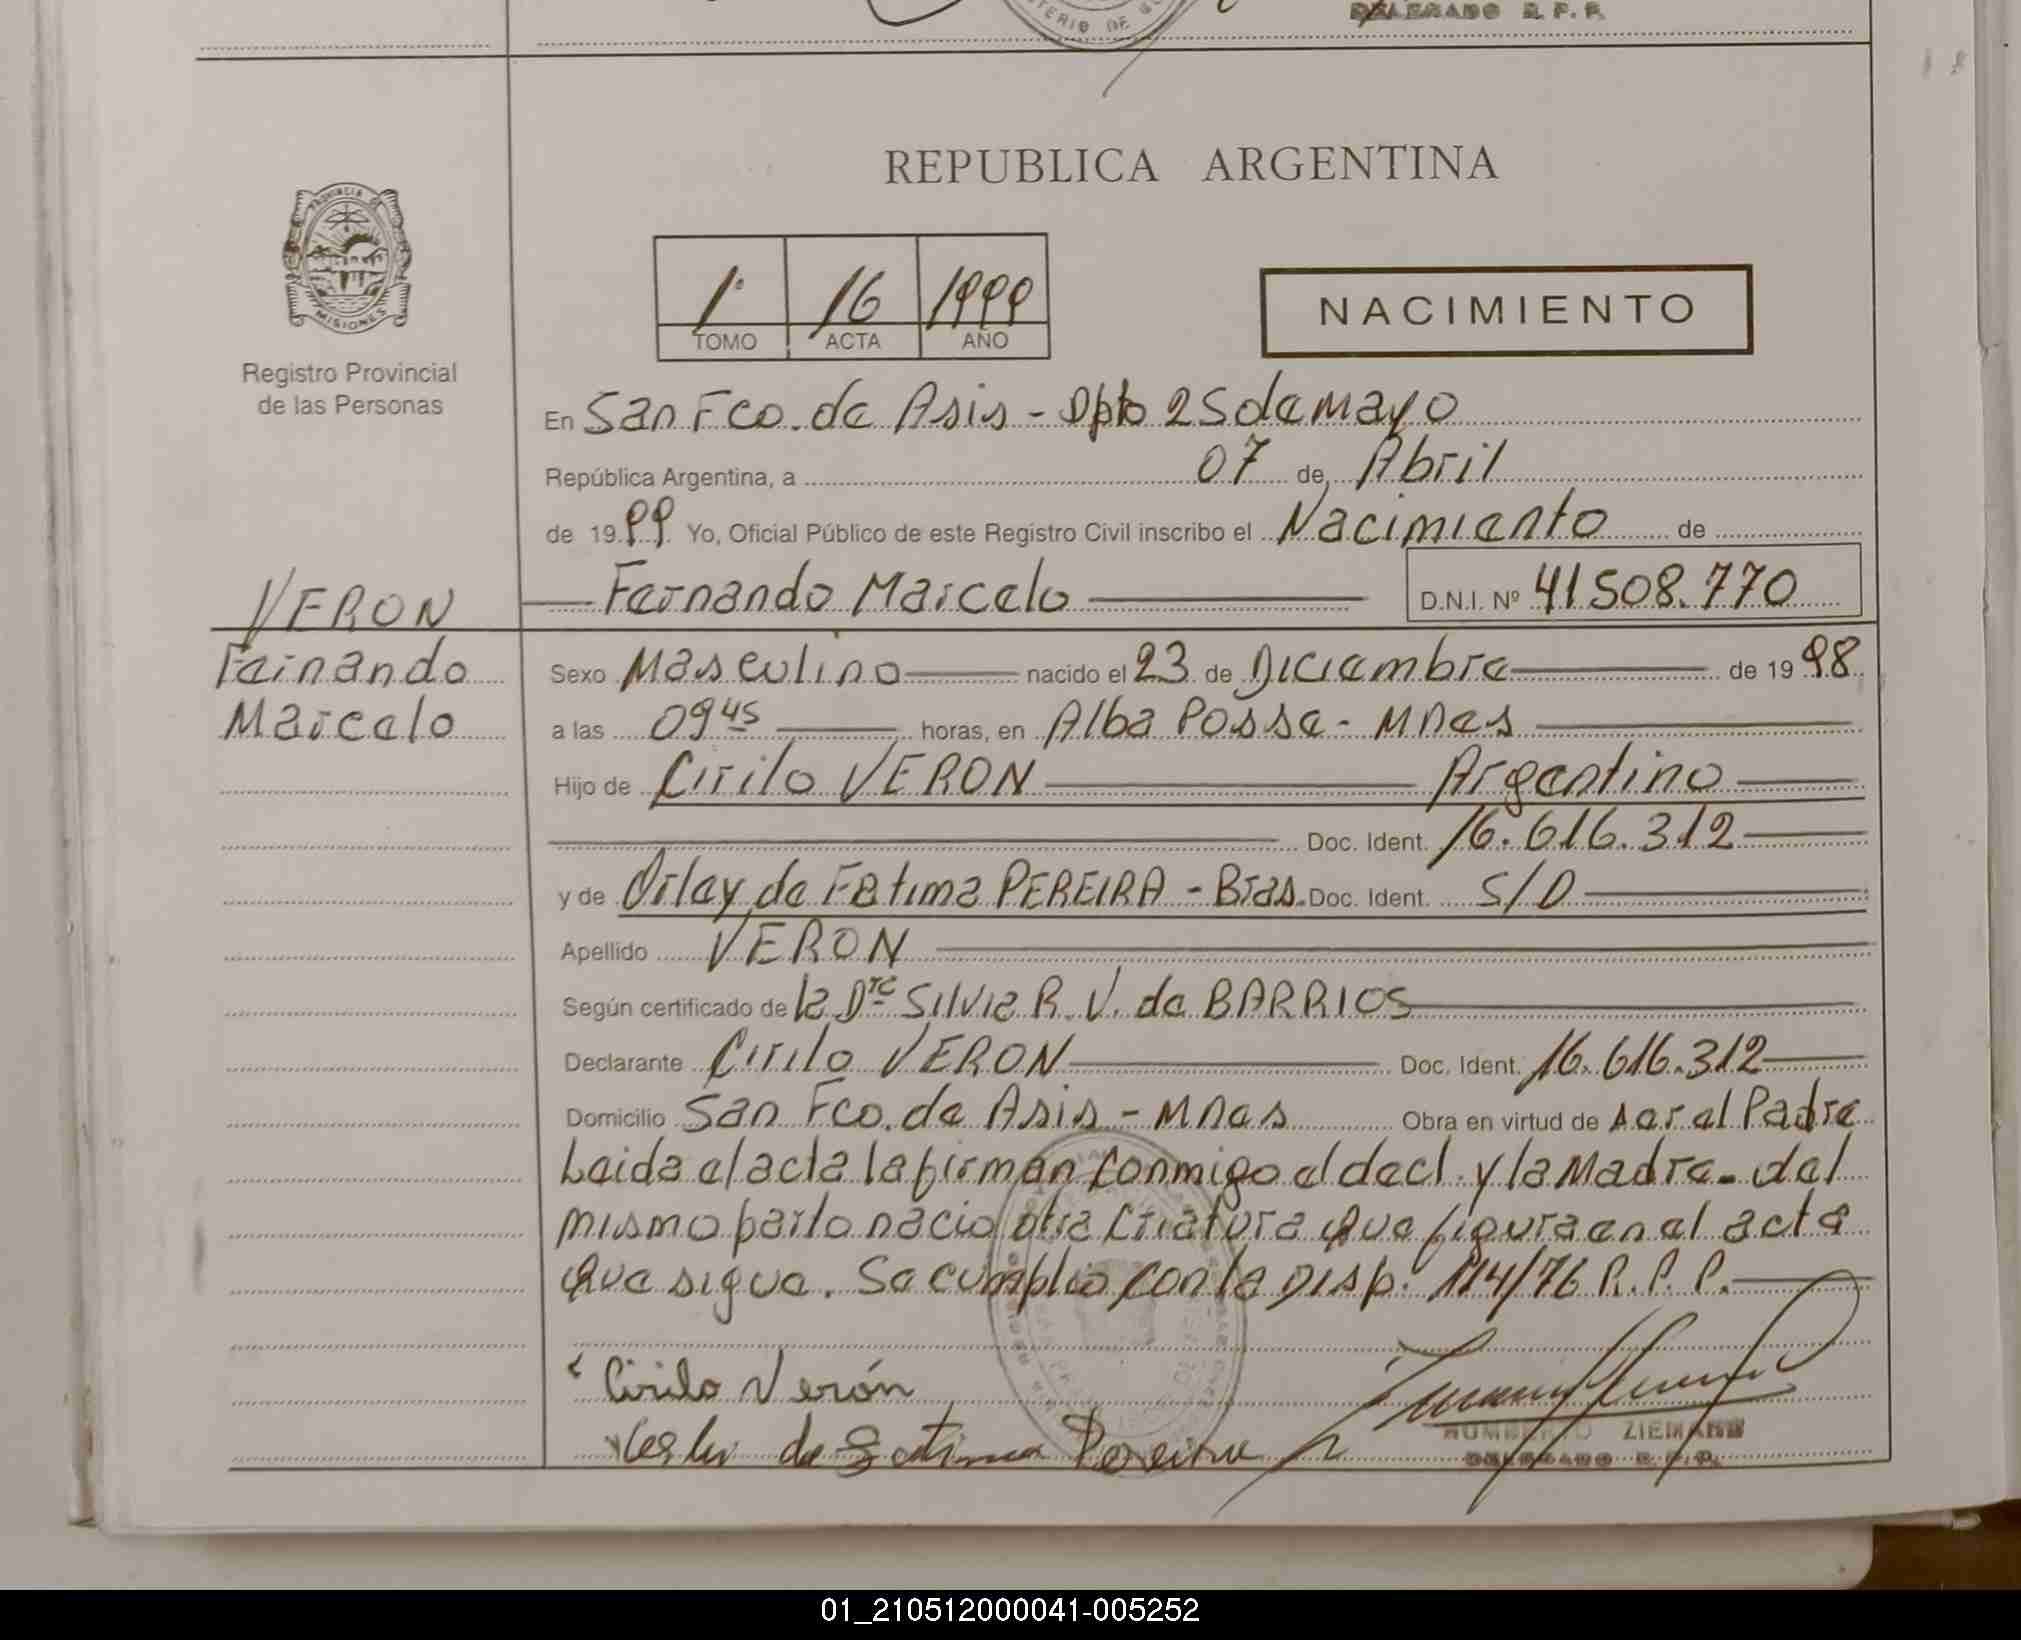 DELEGADO R.P.P.
REPUBLICA ARGENTINA
PROVINCIA DE
MISIONES
Registro Provincial
de las Personas
1º 16 1999
TOMO ACTA AÑO
NACIMIENTO
En San Fco. de Asis - Dpto 25 de Mayo
República Argentina, a 07 de Abril
de 1999 Yo, Oficial Público de este Registro Civil inscribo el Nacimiento de
Fernando Marcelo D.N.I. Nº 41508.770
VERON
Fernando
Marcelo
Sexo Masculino nacido el 23 de Diciembre de 1998
a las 09 45 horas, en Alba Posse - Mnes
Hijo de Cirilo VERON Argentino
Doc. Ident. 16.616.312
y de Orlay de Fatima PEREIRA - Bras. Doc. Ident. S/D
Apellido VERON
Según certificado de la Dra Silvia R. V. de BARRIOS
Declarante Cirilo VERON Doc. Ident. 16.616.312
Domicilio San Fco. de Asis - Mnes Obra en virtud de ser el Padre
Leida el acta la firman conmigo el decl. y la Madre - del
mismo parto nacio otra criatura que figura en el acta
que sigue. Se cumplio con la Disp. 114/76 R.P.P.
Cirilo Verón
de Fatima Pereira
HUMBERTO ZIEMANN
DELEGADO R.P.P.
01_210512000041-005252